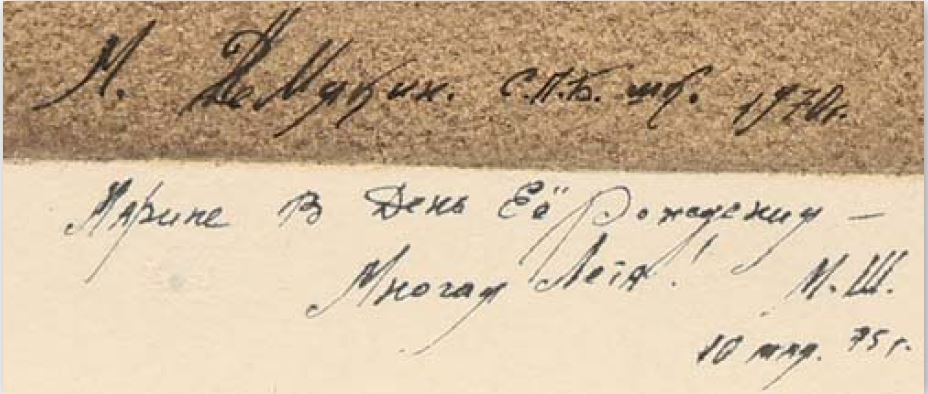 М. Шемякин. С.П.Б. 1970г.
Марине в День Её Рождения —
Многая Лета! М.Ш.
10 75 г.